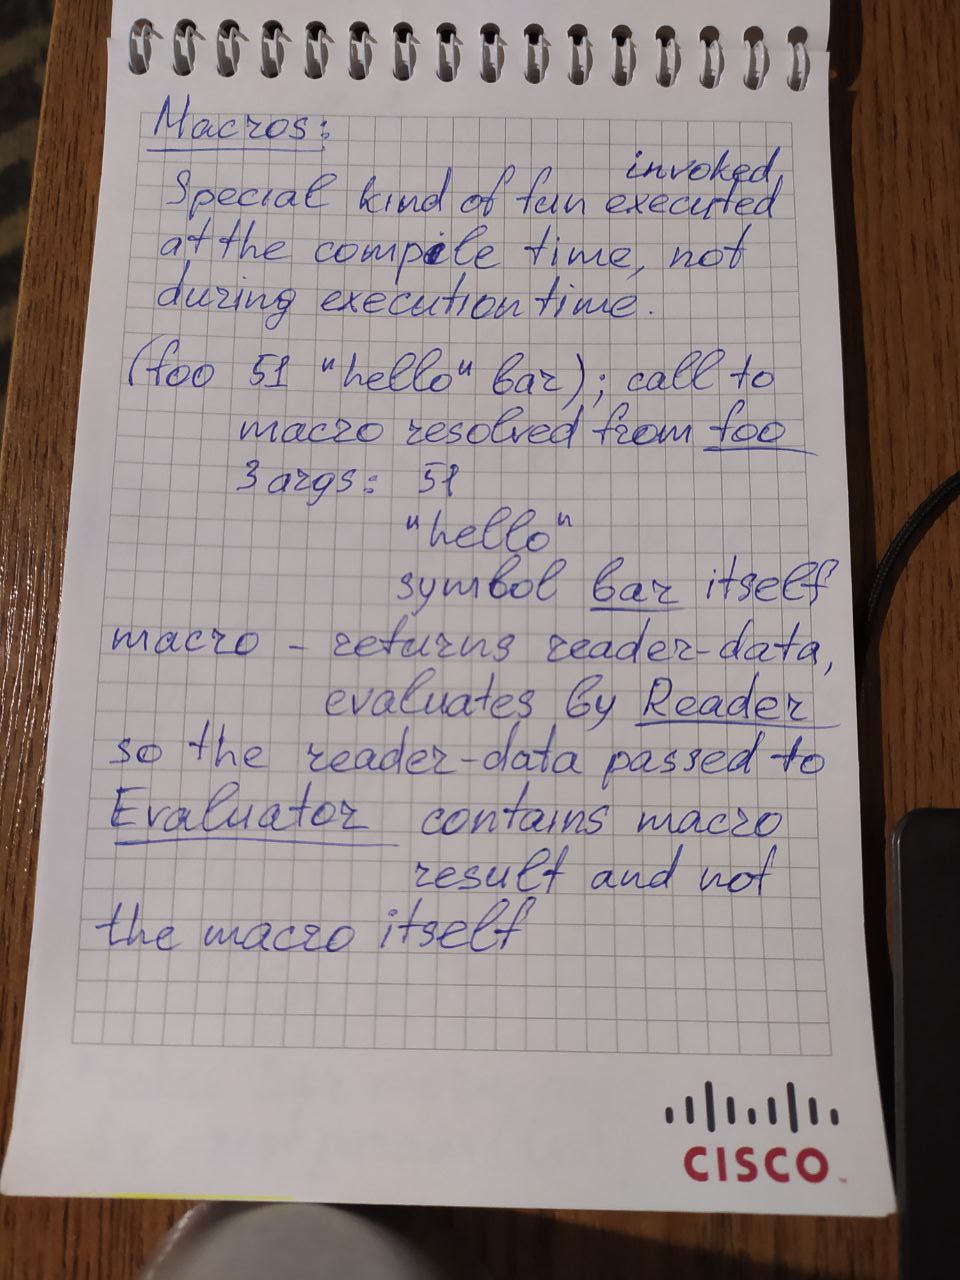 Macros:
invoked,
Special kind of fun executed
at the compile time, not
during execution time.
(foo 51 "hello" bar); call to
macro resolved from foo
3 args: 51
"hello"
symbol bar itself
macro - returns reader-data,
evaluates by Reader
so the reader-data passed to
Evaluator contains macro
result and not
the macro itself
CISCO